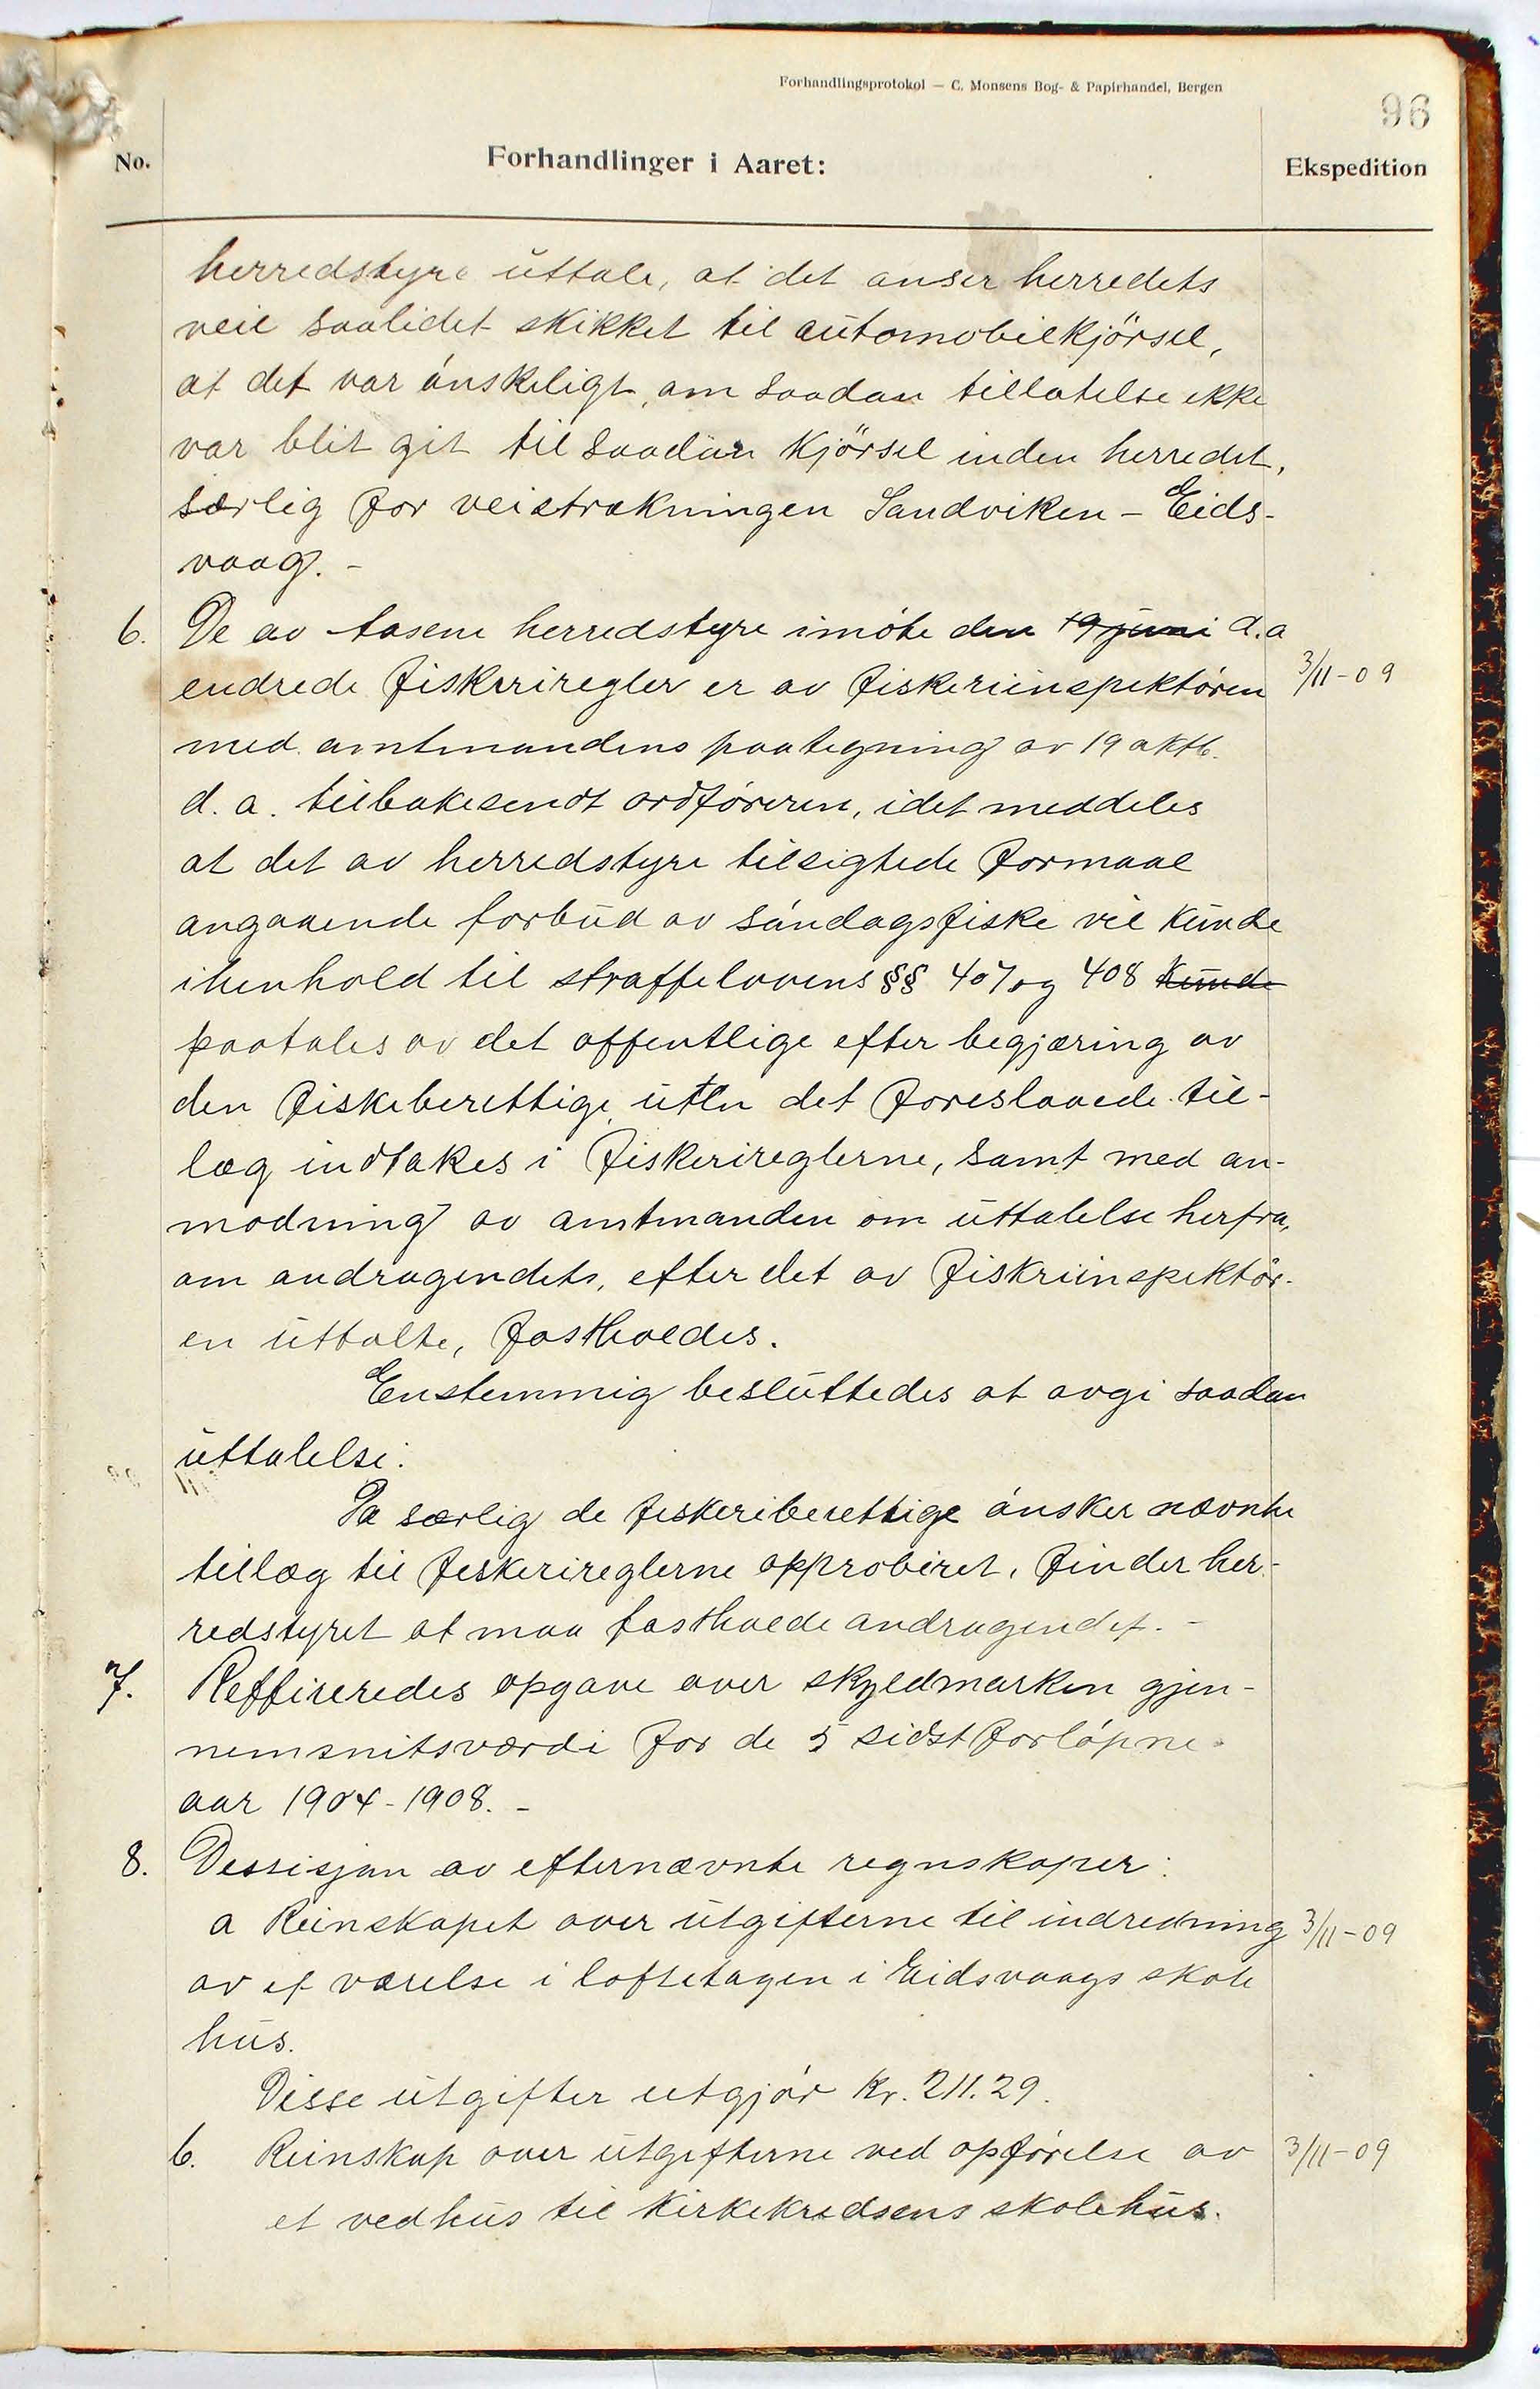 Forhandlingsprotokol — C. Monsens Bog- & Papirhandel, Bergen
96
No.
Forhandlinger i Aaret:
Ekspedition
herredstyre uttale, at det anser herredets
veie saalidet skikket til automobilkjörsel,
at det var ónskeligt, om saadan tillatelse ikke
var blit git til saadan kjörsel inden herredet,
særlig for veistrækningen Sandviken - Eids-
vaag. -
6. De av Aasene herredstyre imóte den 19 juni d.a
endrede fiskeriregler er av fiskeriinspektóren 3/11-09
med amtmandens paategning av 19 oktb.
d. a. tilbakesendt ordfóreren, idet meddeles
at det av herredstyre tilsigtede formaal
angaaende forbud av sóndagsfiske vil kunde
ihenhold til straffelovens §§ 407 og 408 kunde
paatales av det offentlige efter begjæring av
den fiskeberettige, uten det foreslaaede til-
læg indtakes i fiskerireglerne, samt med an-
modning av amtmanden om uttalelse herfra,
om andragendets, efter det av fiskriinspektör-
en uttalte, fastholdes.
Enstemmig besluttedes at avgi saadan
uttalelse:
Da særlig de fiskeriberettige ónsker nævnte
tillæg til fiskerireglerne approbiret, finder her-
redstyret at maa fastholde andragendet. -
7. Reffireredes opgave over skyldmarken gjen-
nemsnitsværdi for de 5 sidst forlópne
aar 1904-1908. -
8. Dessisjon av efternævnte regnskaper:
a Reinskapet over utgifterne til indredning 3/11-09
av et værelse i loftetagen i Eidsvaags skole
hus.
Disse utgifter utgjór kr. 211.29.
b. Reinskap over utgifterne ved opfórelse av 3/11-09
et vedhus til Kirkekredsens skolehus.